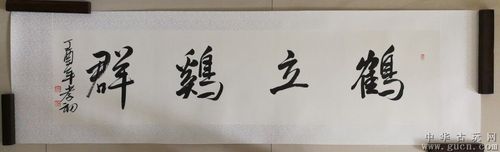 鶴立鷄群
丁酉年孝初
中华古玩网
www.gucn.com